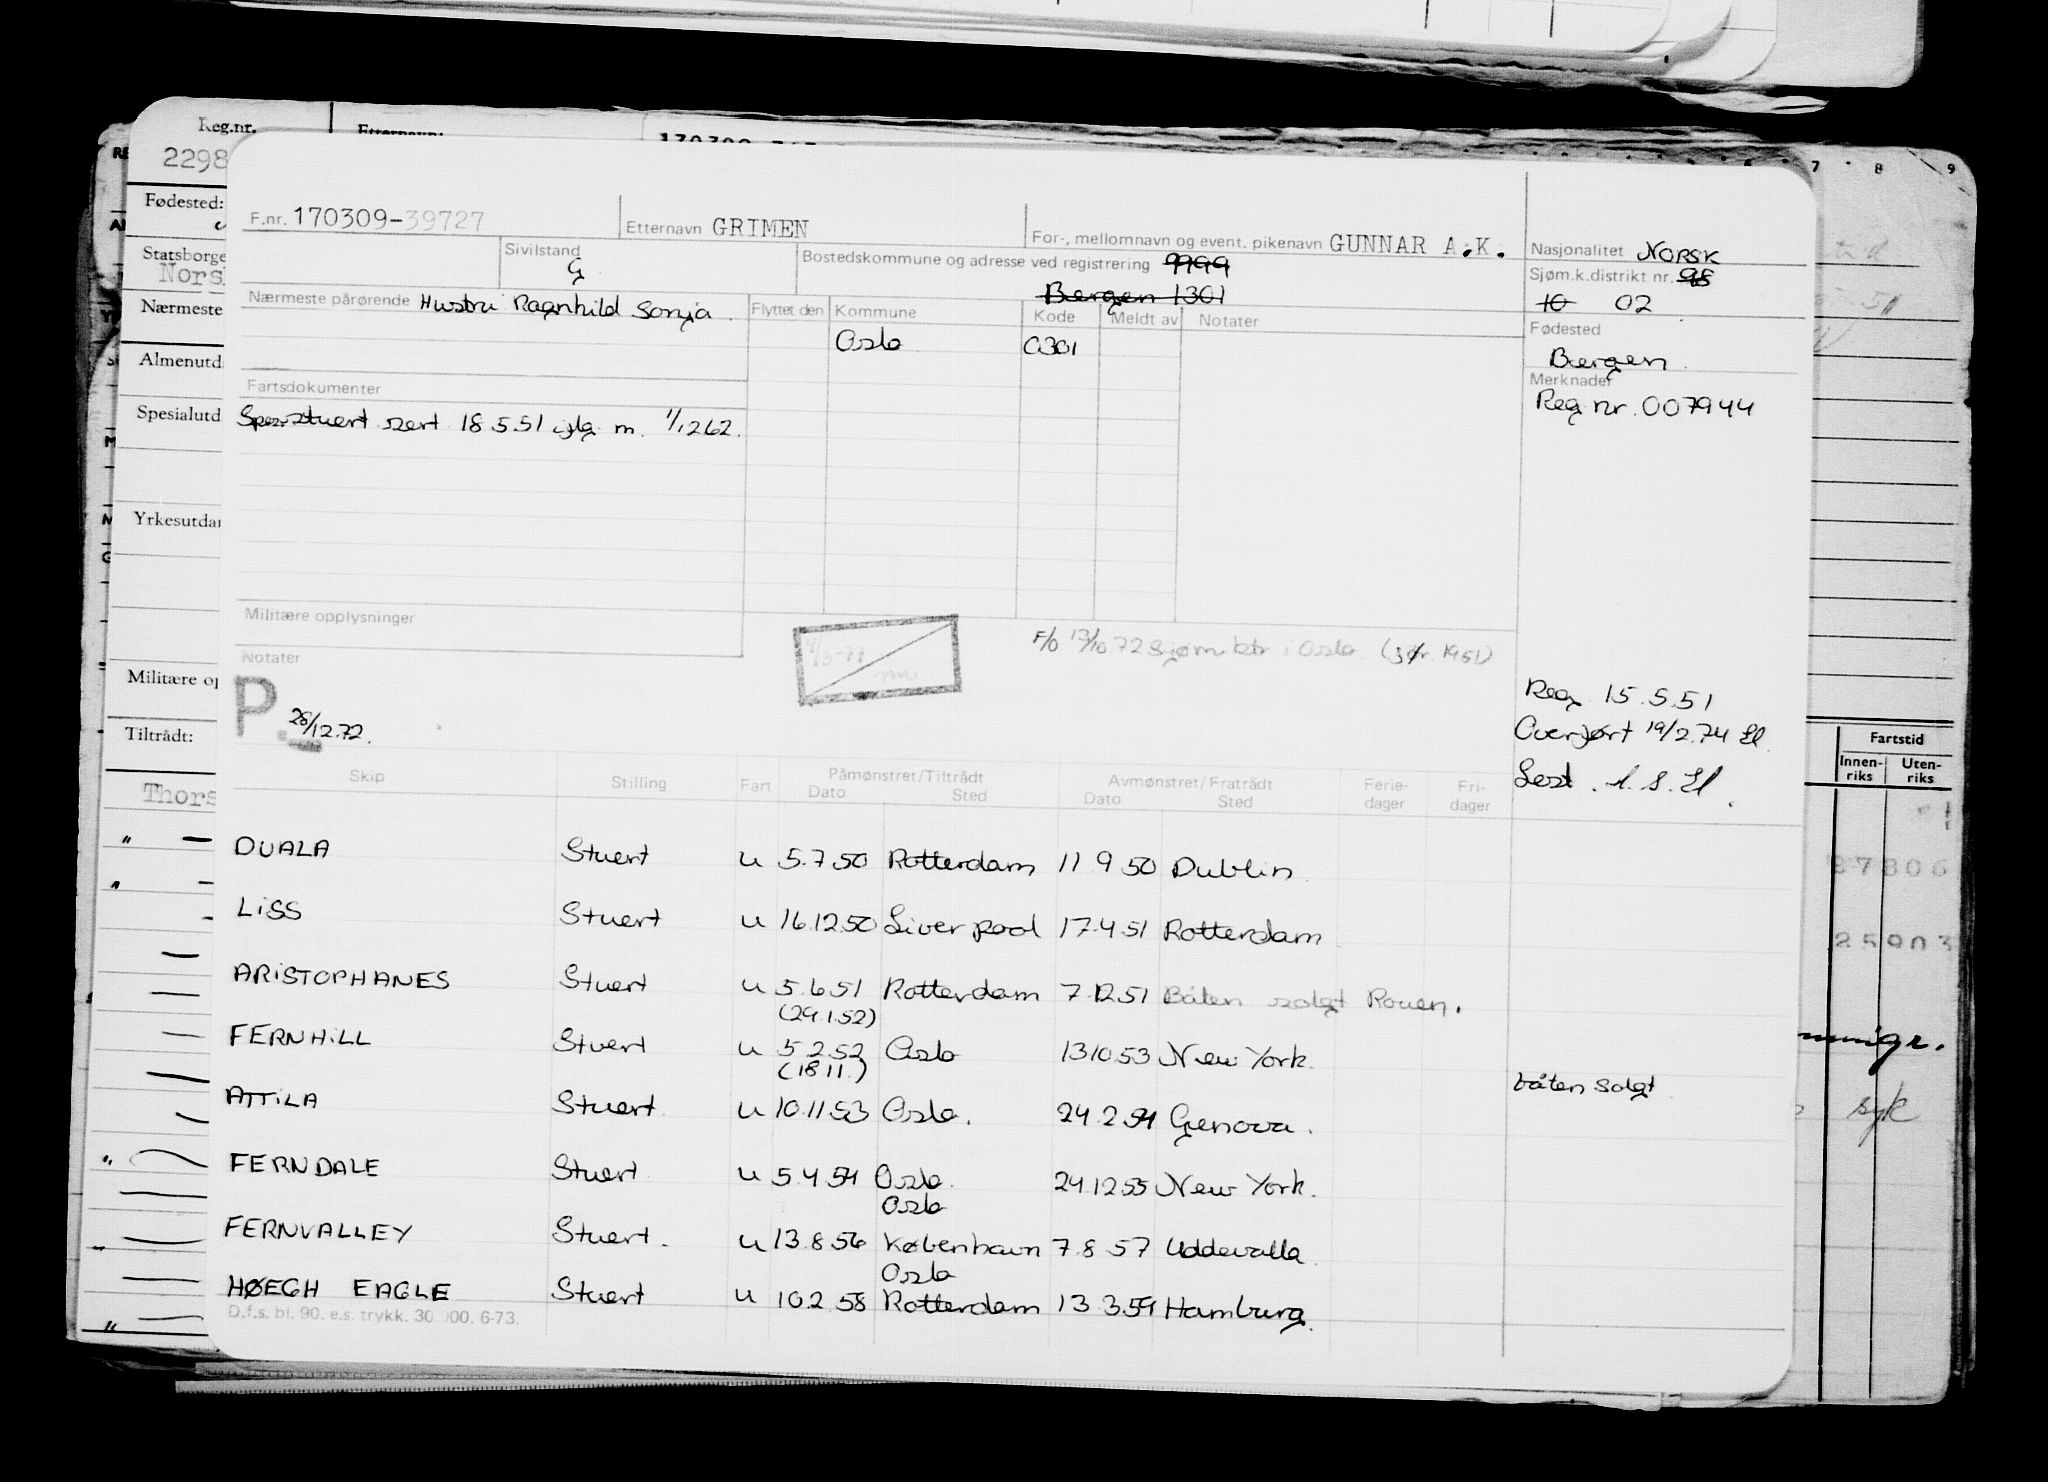 Reg.nr. Etternavn:
2298
Fødested:
Nors
Nærmeste
Almenutd
Spesialutd
Yrkesutdan
Militære op
Tiltrådt:
Thors
7 8 9
F.nr. 170309-39727 Etternavn GRIMEN For-, mellomnavn og event. pikenavn GUNNAR A.K. Nasjonalitet NORSK
Sivilstand G Bostedskommune og adresse ved registrering 9999 Sjøm.k.distrikt nr. 98
Bergen 1301 10 02
Nærmeste pårørende Hustru Ragnhild Sonja. Flyttet den Kommune Kode Meldt av Notater Fødested
Oslo 0301 Bergen.
Fartsdokumenter Merknader
Reg nr. 007944
Spes.stuert sert 18.5.51 iflg m. 1/12 62.
Militære opplysninger
F/O 13/10 72 Sjøm.ktr i Oslo (jfr. 1951)
Notater
P. 28/12.72.
Reg 15.5.51
Overført 19/2.74 El
Lest. A. S. El.
Skip Stilling Fart Påmønstret/Tiltrådt Avmønstret/Fratrådt Ferie- Fri-
Dato Sted Dato Sted dager dager
DUALA Stuert u 5.7.50 Rotterdam 11 9 50 Dublin
LISS Stuert u 16.12.50 Liverpool 17.4.51 Rotterdam
ARISTOPHANES Stuert u 5.6.51 Rotterdam 7.12.51 Båten solgt Rouen.
(29.1.52)
FERNHILL Stuert u 5.2.52 Oslo 13.10.53 New York.
(18.11.) båten solgt
ATTILA Stuert u 10.11.53 Oslo. 24.2.54 Genova.
FERNDALE Stuert u 5.4.54 Oslo. 24.12.55 New York.
Oslo
FERNVALLEY Stuert. u 13.8.56 København 7.8.57 Uddevalla
Oslo
HØEGH EAGLE Stuert u 10.2.58 Rotterdam 13.3.59 Hamburg.
D.f.s. bl. 90. e.s. trykk. 30 000. 6-73.
Fartstid
Innen-riks Uten-riks
25903
syk